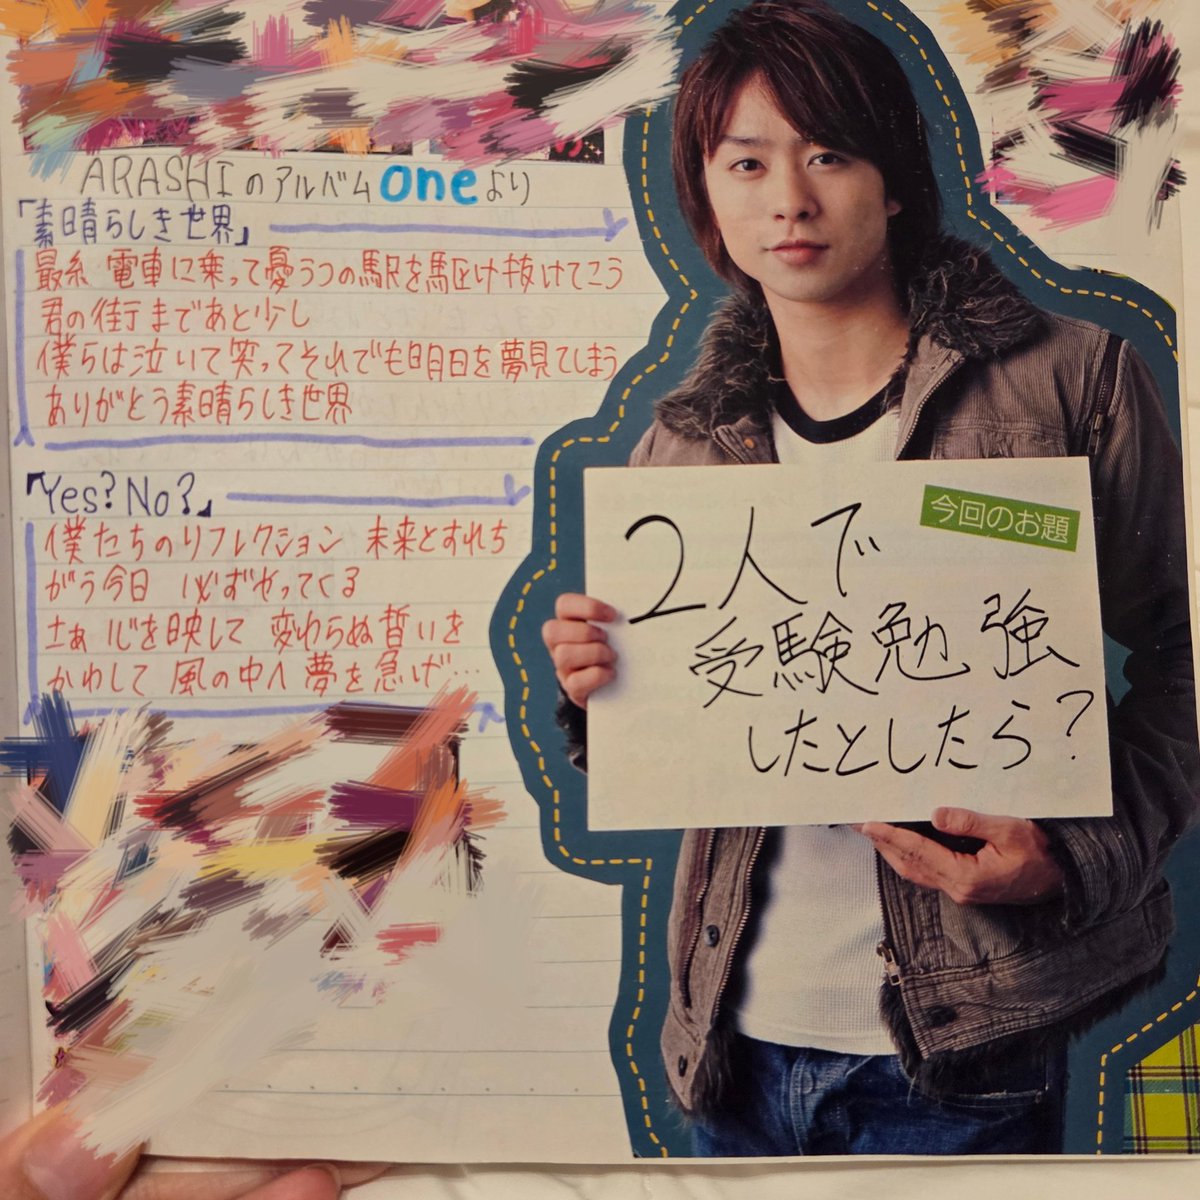 ARASHIのアルバムoneより
「素晴らしき世界」
最終電車に乗って憂うつの駅を駆け抜けてこう
君の街まであと少し
僕らは泣いて笑ってそれでも明日を夢見てしまう
ありがとう素晴らしき世界
「Yes? No?」
僕たちのリフレクション 未来とすれち
がう今日 必ずやってくる
さぁ 心を映して 変わらぬ誓いを
かわして 風の中へ 夢を急げ…
今回のお題
2人で
受験勉強
したとしたら?